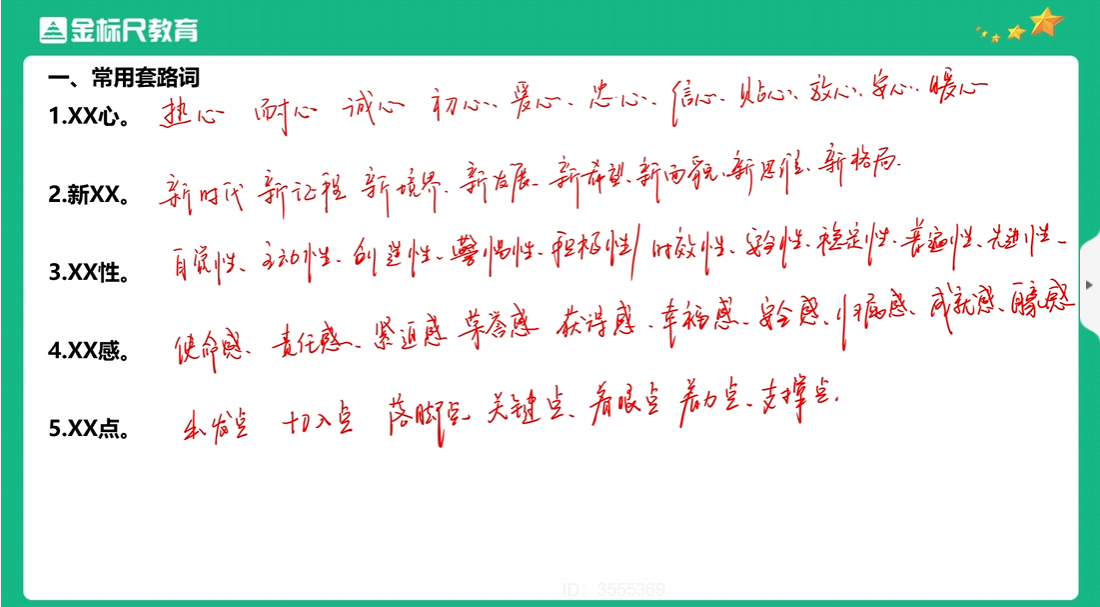 金标尺教育
一、常用套路词
1.XX心。 热心 耐心 诚心 初心、爱心、忠心、信心、贴心、放心、安心、暖心
2.新XX。 新时代 新征程 新境界、新发展、新希望、新面貌、新思维、新格局.
3.XX性。 自觉性、主动性、创造性、警惕性、积极性/时效性、安全性、稳定性、普遍性、先进性、
4.XX感。 使命感、责任感、紧迫感 荣誉感 获得感、幸福感、安全感、归属感、成就感、
5.XX点。 出发点 切入点 落脚点、关键点、着眼点 着力点、支撑点.
ID: 3555369